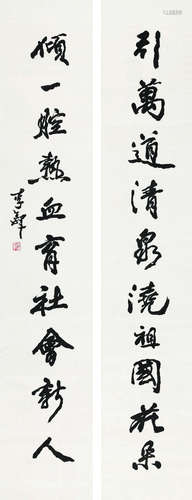 引萬道清泉澆祖國花朵
傾一腔熱血育社會新人
李鐸